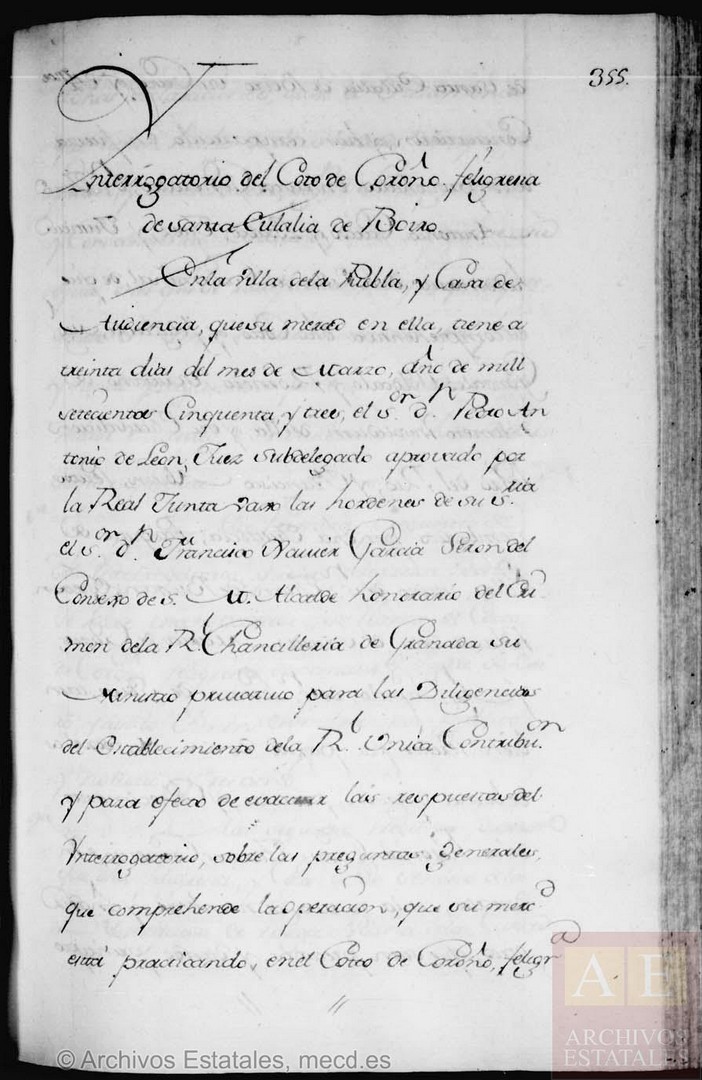 355.
Ynterrogatorio del Coto de Coroño feligresia
de santa Eulalia de Boiro
En la villa dela Puebla, y Casa de
Audiencia, que su merced en ella, tiene a
treinta dias del mes de Marzo, año de mill
setecientos Cinquenta, y tres, el s.or d.n Pedro An
tonio de Leon, Juez subdelegado aprovado por
la Real Junta vaxo las hordenes de su S.ria
el s.or d.n Francisco Xavier Garcia Seron del
Consexo de S. M. Alcalde honorario del Cri
men dela R.l Chancilleria de Granada su
Ministro privativo para las Diligencias
del establecimiento dela R.l Unica Contribu.on
y para efecto de evacuar las respuestas del
Ynterrogatorio, sobre las preguntas generales,
que comprehende la operacion, que su merc.d
està practicando, en el Coto de Coroño, feligr.a
AE
ARCHIVOS
ESTATALES
© Archivos Estatales, mecd.es